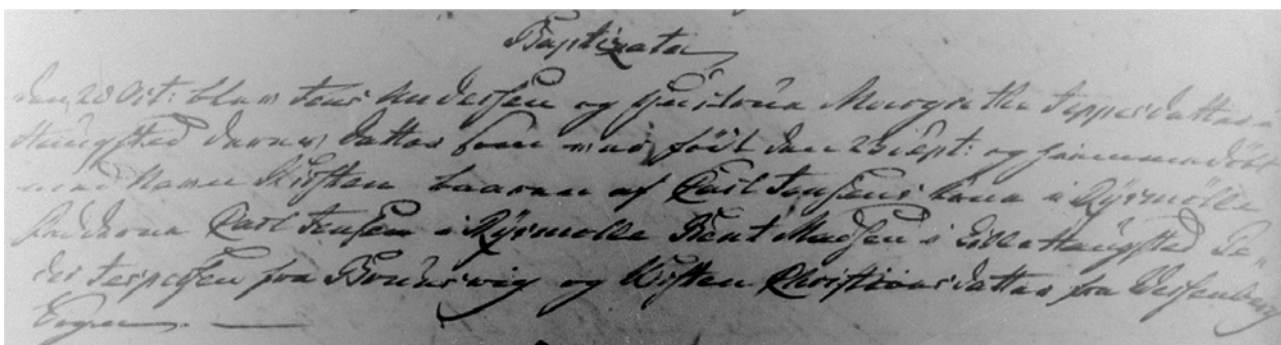 Baptizata
den 20 Oct: blev Jens Andersen og Hustrue Margrethe Jeppesdatter
Haugsted deres Datter som var född den 23 Sept: og hiemmedöbt
med Navn Kirsten baaren af Carl Jensens kone i Rÿemölle
Fadderne Carl Jensen i Rÿemölle Bent Madsen i Lille Haugsted Pe¬
der Jespersen fra og Kirsten Christiansdatter fra